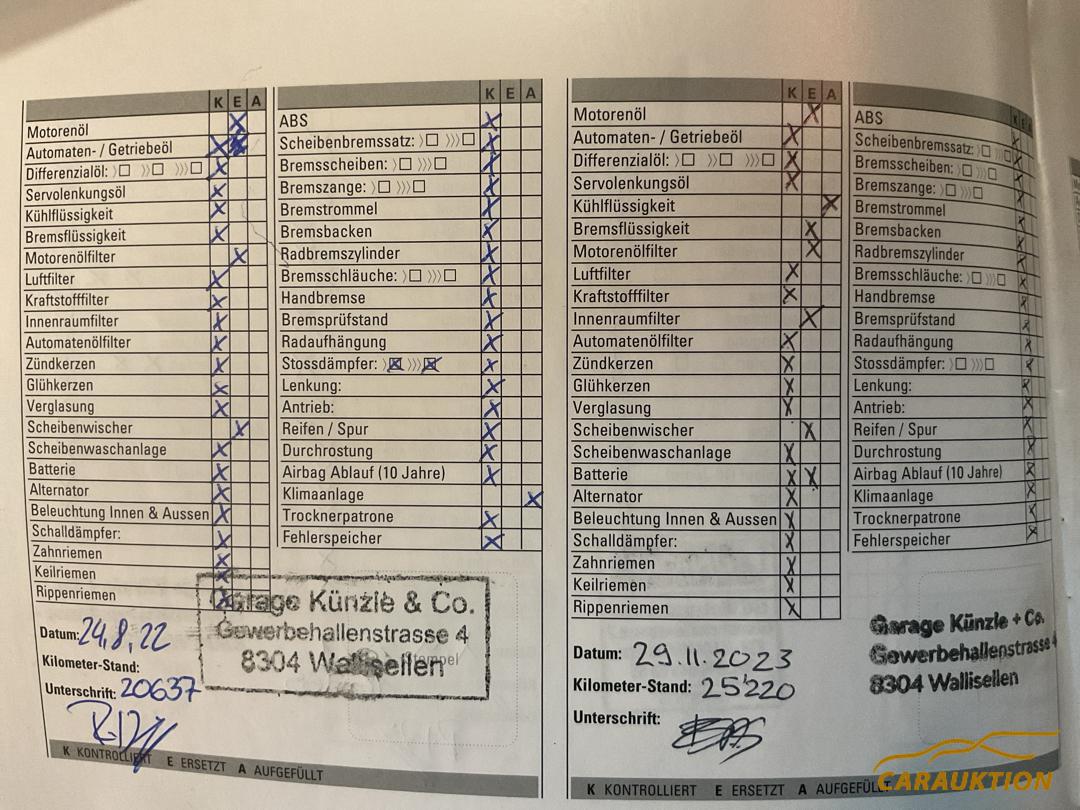 K E A
Motorenöl X
Automaten- / Getriebeöl X
Differenzialöl: 〉☐ 〉〉☐ 〉〉〉☐ X
Servolenkungsöl X
Kühlflüssigkeit X
Bremsflüssigkeit X
Motorenölfilter X
Luftfilter X
Kraftstofffilter X
Innenraumfilter X
Automatenölfilter X
Zündkerzen X
Glühkerzen X
Verglasung X
Scheibenwischer X
Scheibenwaschanlage X
Batterie X
Alternator X
Beleuchtung Innen & Aussen X
Schalldämpfer: X
Zahnriemen X
Keilriemen X
Rippenriemen X
Datum: 24.8.22
Kilometer-Stand:
Unterschrift: 20637
K E A
ABS X
Scheibenbremssatz: 〉☐ 〉〉〉☐ X
Bremsscheiben: 〉☐ 〉〉〉☐ X
Bremszange: 〉☐ 〉〉〉☐ X
Bremstrommel X
Bremsbacken X
Radbremszylinder X
Bremsschläuche: 〉☐ 〉〉〉☐ X
Handbremse X
Bremsprüfstand X
Radaufhängung X
Stossdämpfer: 〉☒ 〉〉〉☒ X
Lenkung: X
Antrieb: X
Reifen / Spur X
Durchrostung X
Airbag Ablauf (10 Jahre) X
Klimaanlage X
Trocknerpatrone X
Fehlerspeicher X
Garage Künzle & Co.
Gewerbehallenstrasse 4
8304 Wallisellen
Stempel
K KONTROLLIERT E ERSETZT A AUFGEFÜLLT
K E A
Motorenöl X
Automaten- / Getriebeöl X
Differenzialöl: 〉☐ 〉〉☐ 〉〉〉☐ X
Servolenkungsöl X
Kühlflüssigkeit X
Bremsflüssigkeit X
Motorenölfilter X
Luftfilter X
Kraftstofffilter X
Innenraumfilter X
Automatenölfilter X
Zündkerzen X
Glühkerzen X
Verglasung X
Scheibenwischer X
Scheibenwaschanlage X
Batterie X X
Alternator X
Beleuchtung Innen & Aussen X
Schalldämpfer: X
Zahnriemen X
Keilriemen X
Rippenriemen X
Datum: 29.11.2023
Kilometer-Stand: 25'220
Unterschrift:
K E A
ABS X
Scheibenbremssatz: 〉☐ 〉〉〉☐ X
Bremsscheiben: 〉☐ 〉〉〉☐ X
Bremszange: 〉☐ 〉〉〉☐ X
Bremstrommel X
Bremsbacken X
Radbremszylinder X
Bremsschläuche: 〉☐ 〉〉〉☐ X
Handbremse X
Bremsprüfstand X
Radaufhängung X
Stossdämpfer: 〉☐ 〉〉〉☐ X
Lenkung: X
Antrieb: X
Reifen / Spur X
Durchrostung X
Airbag Ablauf (10 Jahre) X
Klimaanlage X
Trocknerpatrone X
Fehlerspeicher X
Garage Künzle + Co.
Gewerbehallenstrasse 4
8304 Wallisellen
K KONTROLLIERT E ERSETZT A AUFGEFÜLLT
CARAUKTION